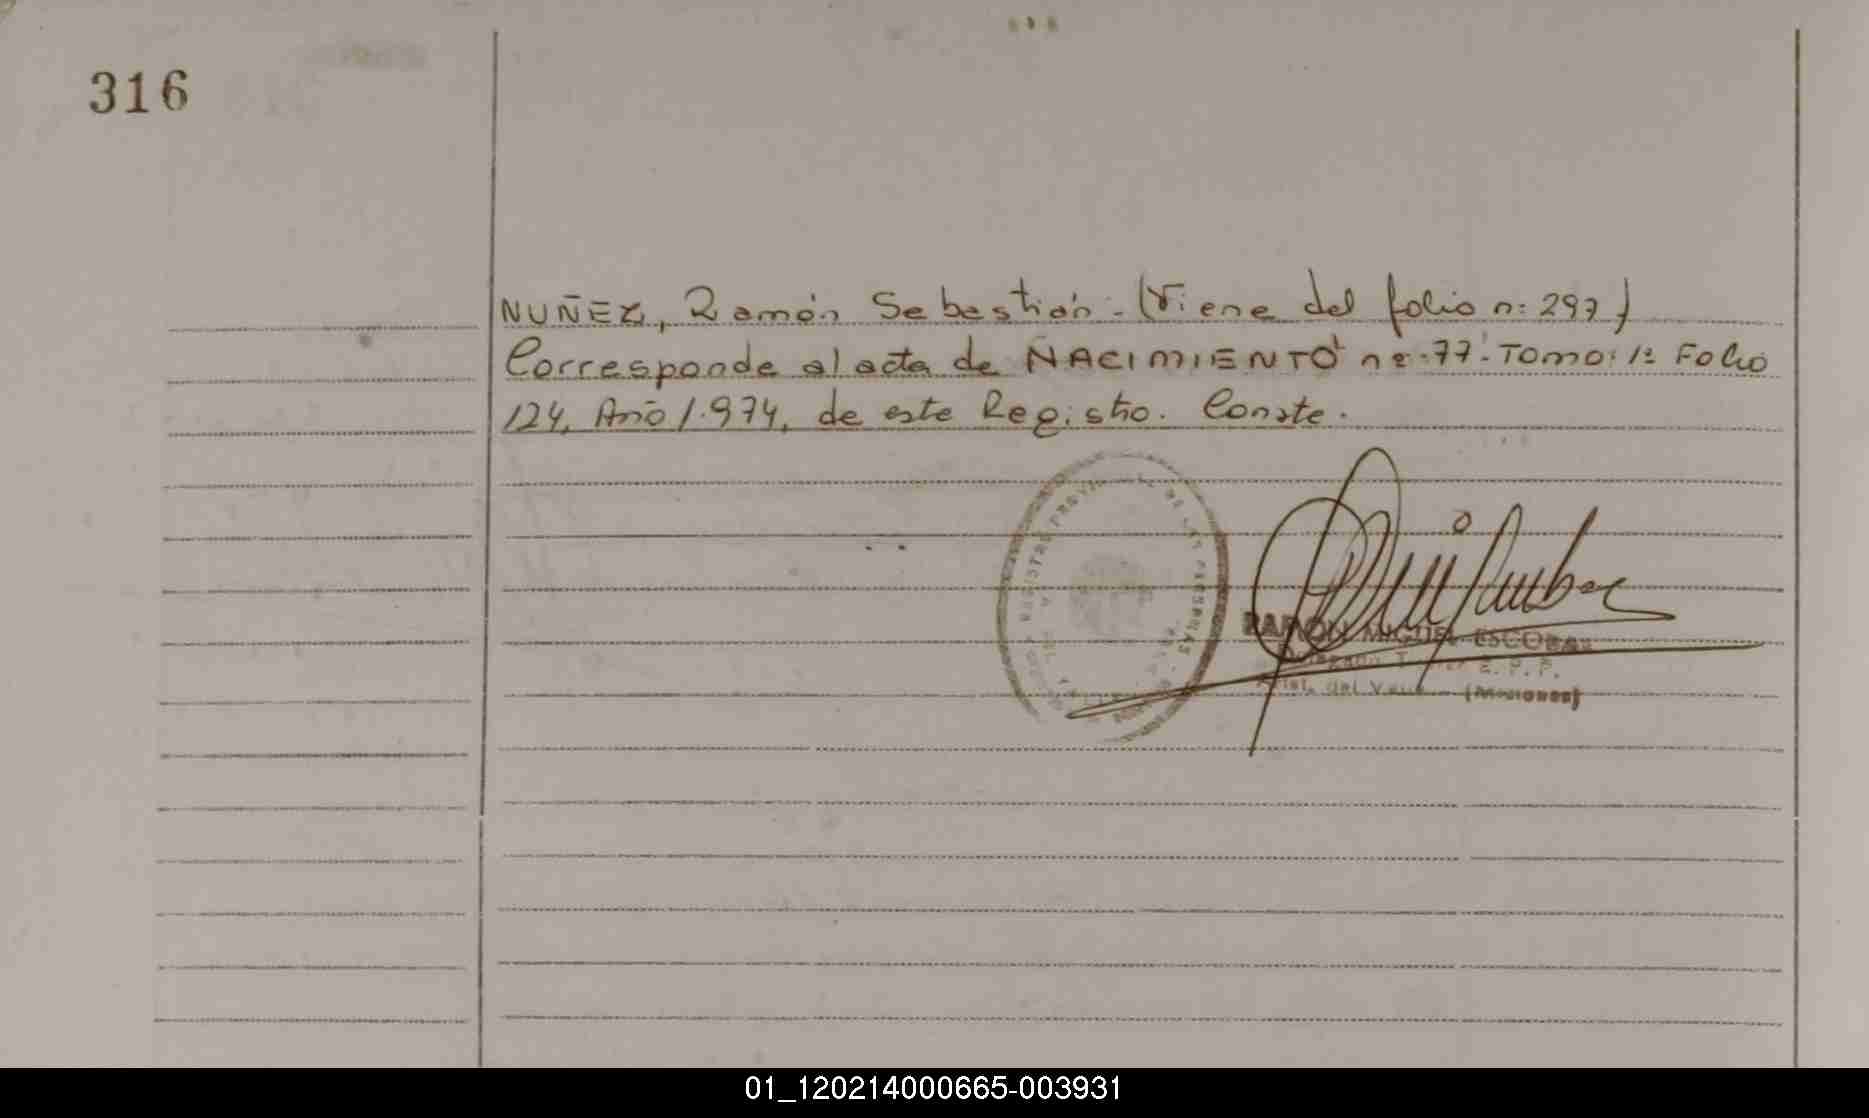 316
NUÑEZ, Ramón Sebastián.- (Viene del folio n: 297)
Corresponde al acta de NACIMIENTO nº 77. Tomo: 1º Folio
124, Año 1.974, de este Registro. Conste.
REGISTRO PROVINCIAL DE LAS PERSONAS
RAMON MIGUEL ESCOBAR
E. P. P.
del (Misiones)
01_120214000665-003931